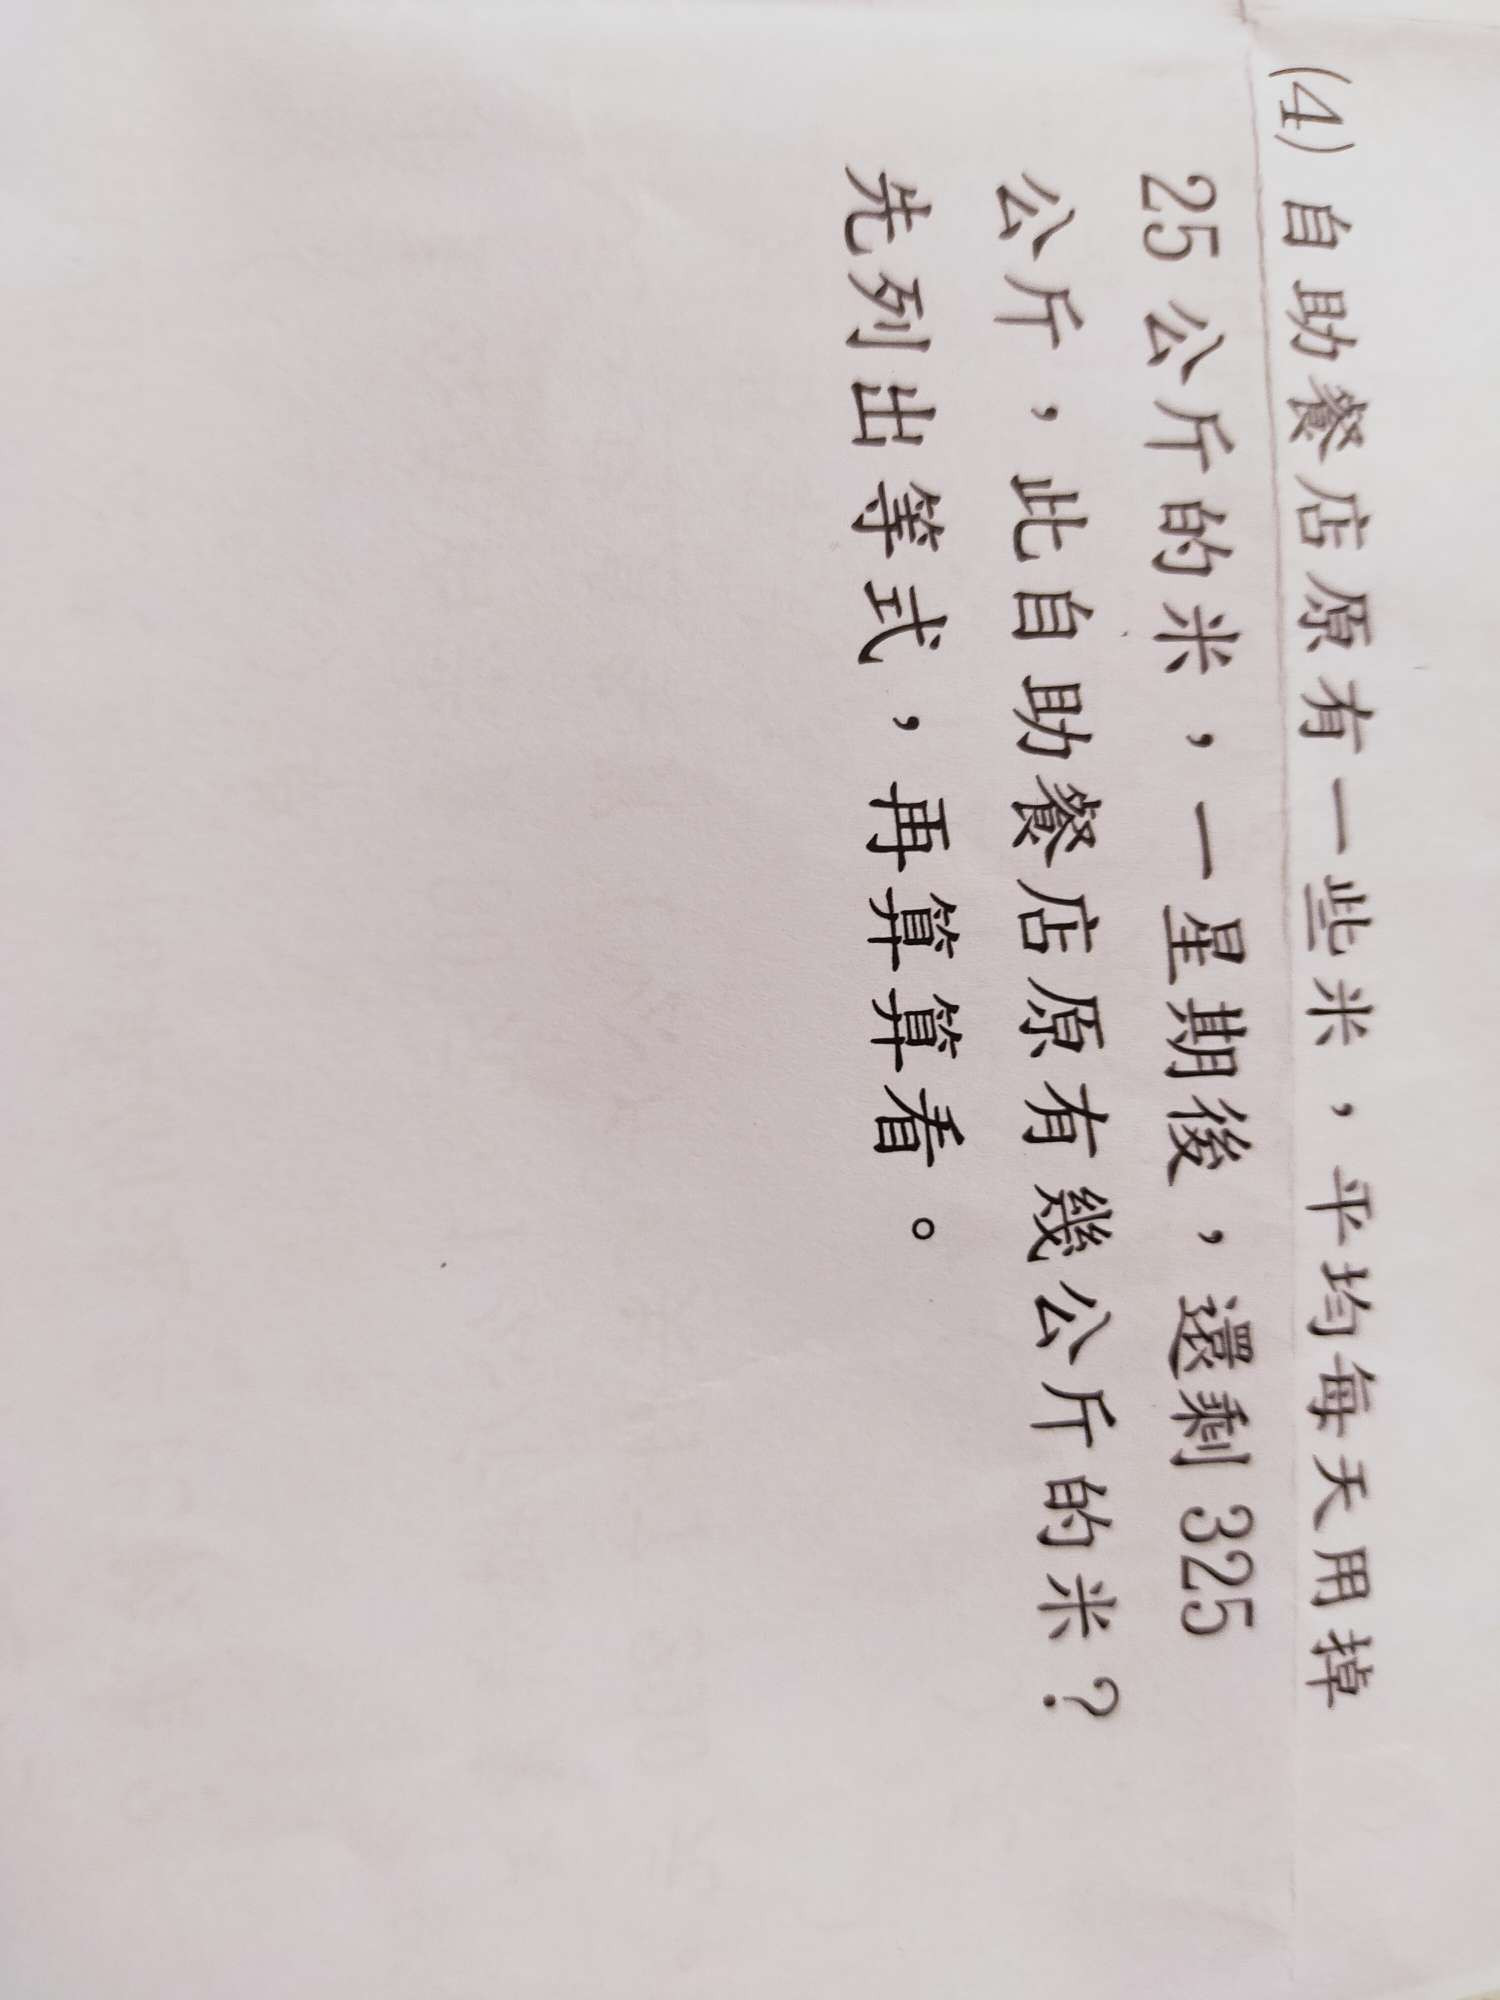 (4) 自助餐店原有一些米，平均每天用掉
25 公斤的米，一星期後，還剩 325
公斤，此自助餐店原有幾公斤的米？
先列出等式，再算算看。